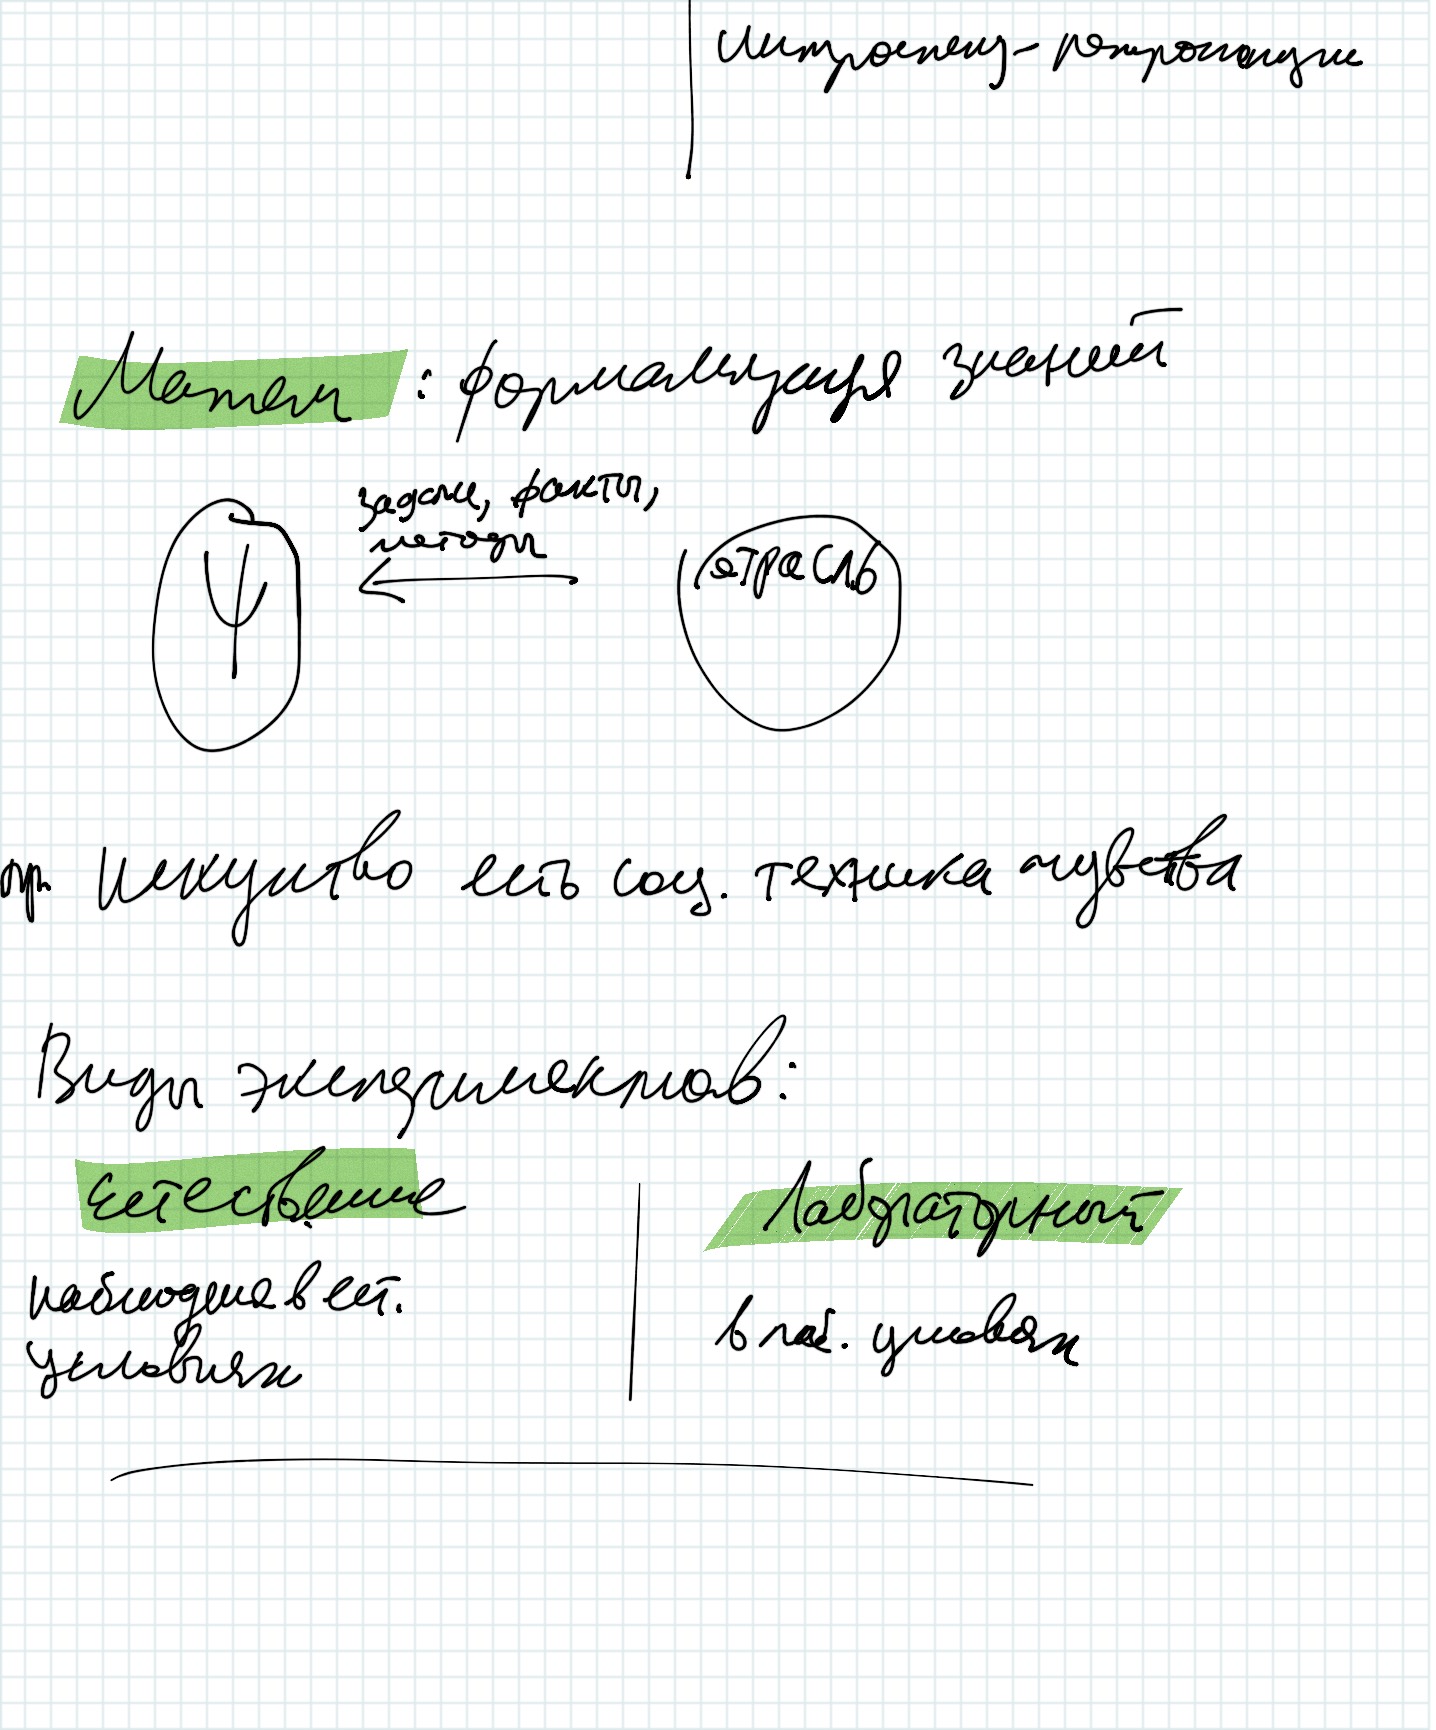 Интроспекц- ретроспекции
Матем : формализация знаний
задачи, факты,
методы
Ψ
отрасль
пр. Искусство есть соц. техника чувства
Виды экспериментов:
Естественные
Лабораторный
наблюдения в ест.
условиях
в лаб. условиях